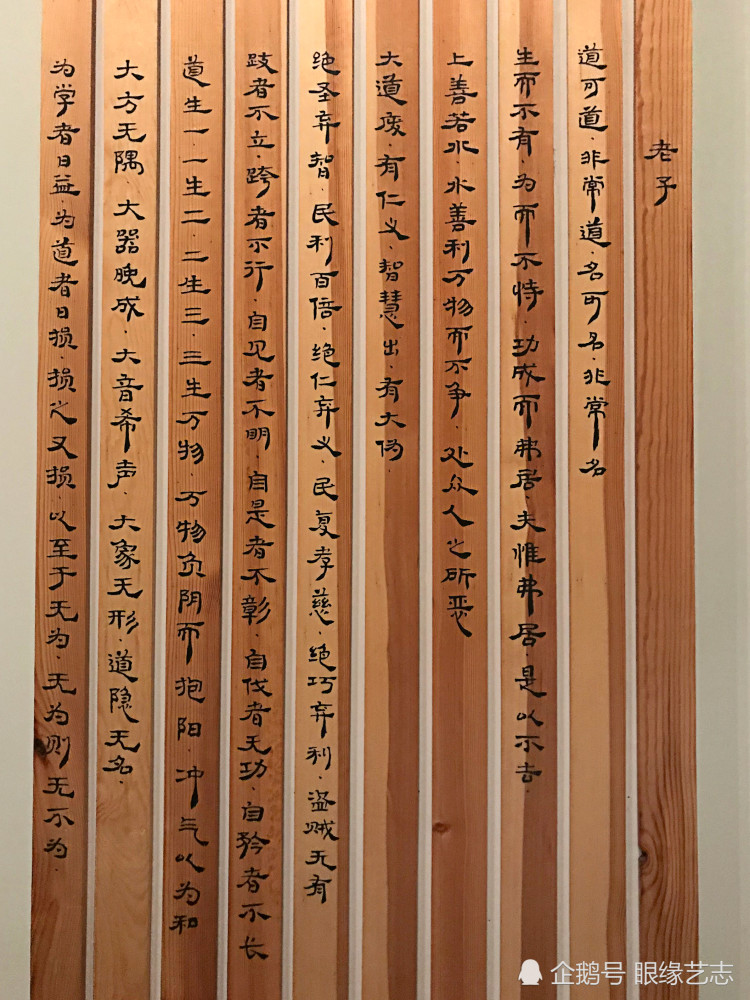 老子
道可道·非常道·名可名·非常名
生而不有·为而不恃·功成而弗居·夫惟弗居·是以不去·
上善若水·水善利万物而不争·处众人之所恶
大道废·有仁义·智慧出·有大伪·
绝圣弃智·民利百倍·绝仁弃义·民复孝慈·绝巧弃利·盗贼无有
跂者不立·跨者不行·自见者不明·自是者不彰·自伐者无功·自矜者不长
道生一·一生二·二生三·三生万物·万物负阴而抱阳·冲气以为和
大方无隅·大器晚成·大音希声·大象无形·道隐无名·
为学者日益·为道者日损·损之又损·以至于无为·无为则无不为·
企鹅号 眼缘艺志